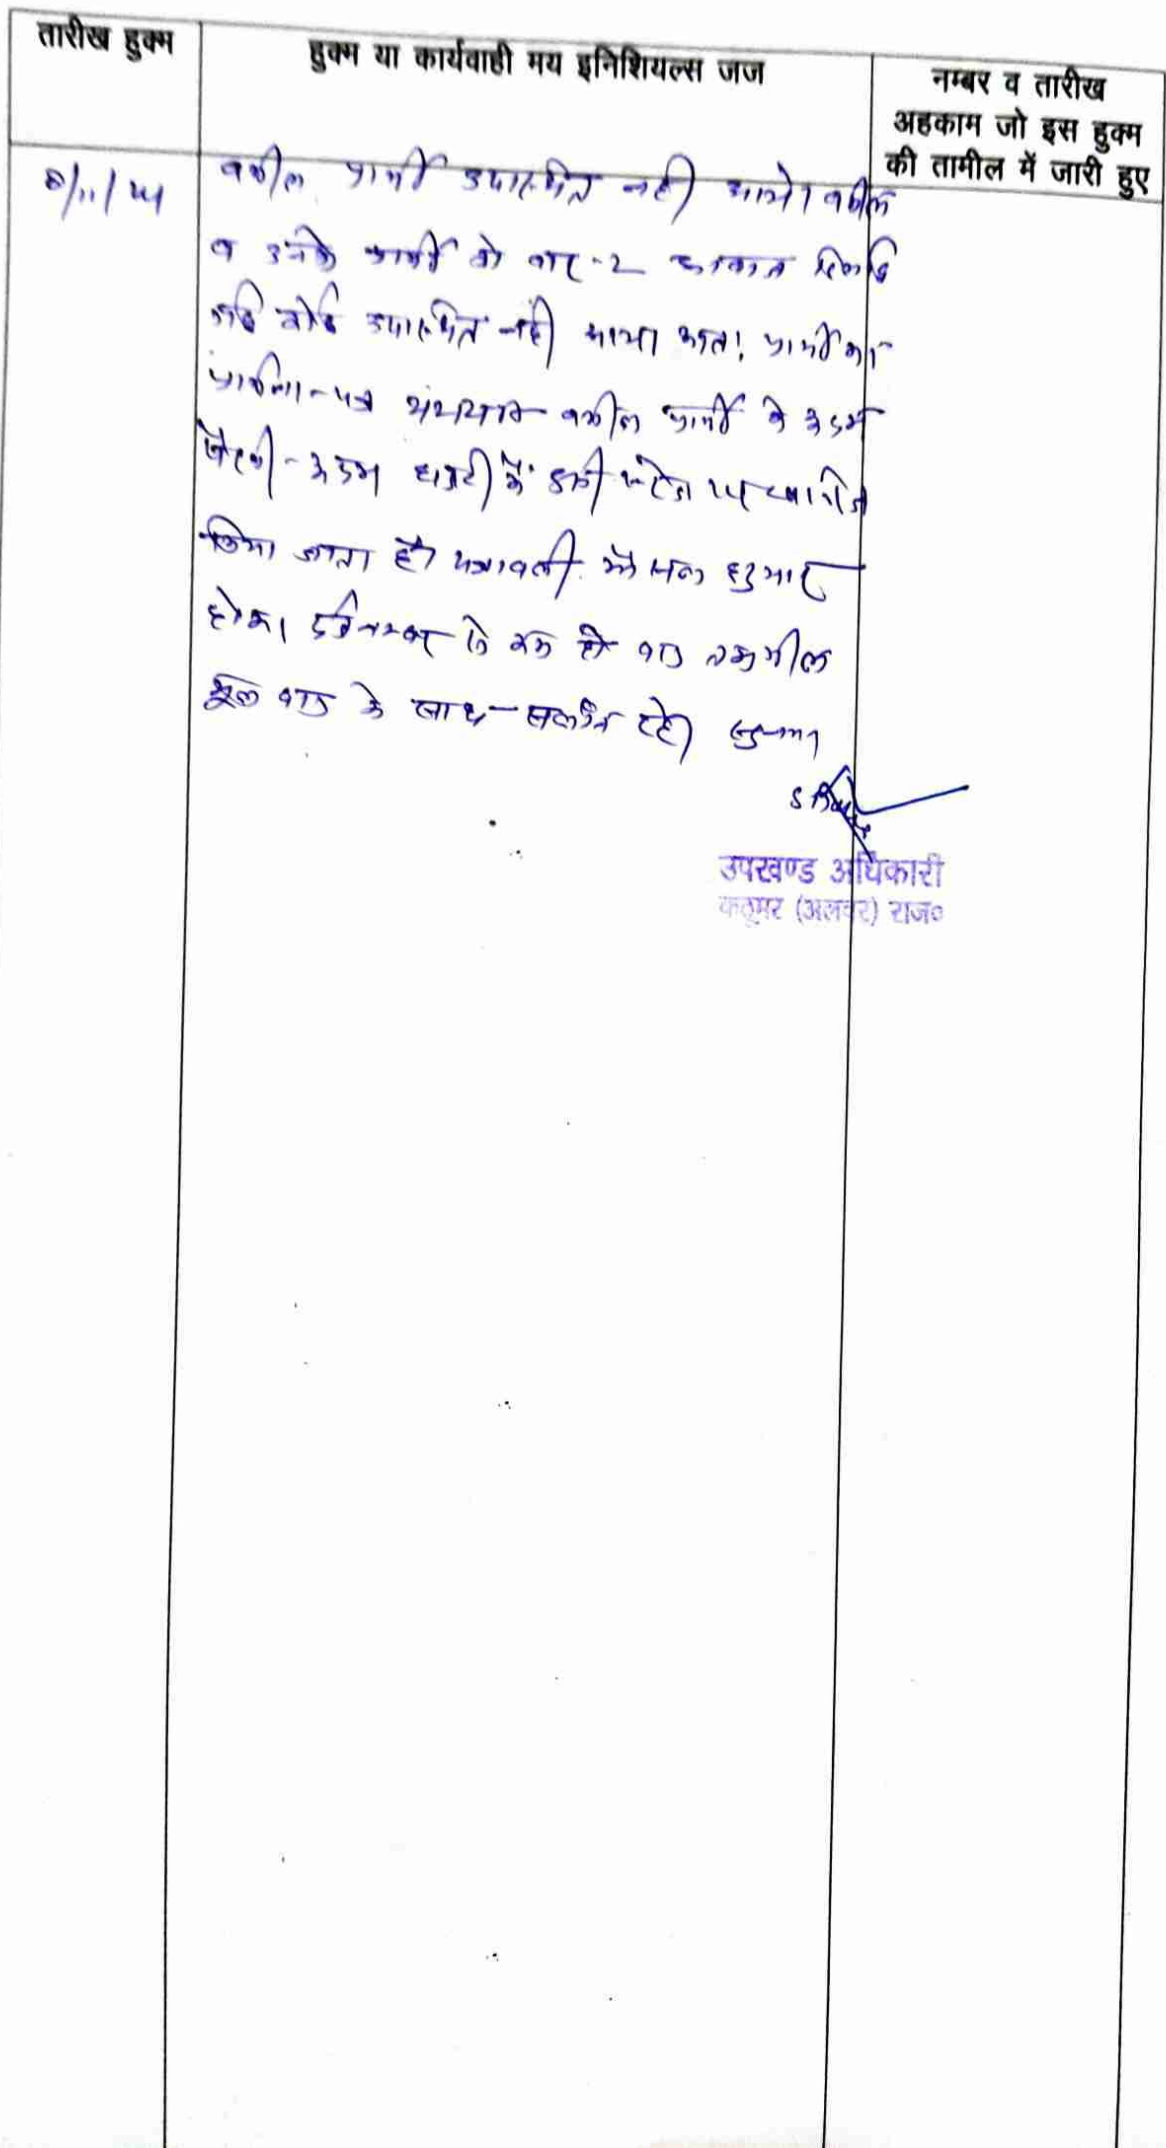 तारीख हुक्म
हुक्म या कार्यवाही मय इनिशियल्स जज
नम्बर व तारीख
अहकाम जो इस हुक्म
की तामील में जारी हुए
वकील प्रार्थी उपस्थित नही आये। वकील
व उनके प्रार्थी को बार-2
कोई उपस्थित नही आया अतः प्रार्थी का
प्रार्थना-पत्र वकील प्रार्थी के अदम
पैरवी-अदम हाजरी में इसी स्टेज पर खारीज
किया जाता है। पत्रावली फैसल शुमार
होकर नम्बर से कम हो वाद तकमील
मूल वाद के साथ-सलंग्न रहे।
उपखण्ड अधिकारी
कठूमर (अलवर) राज०